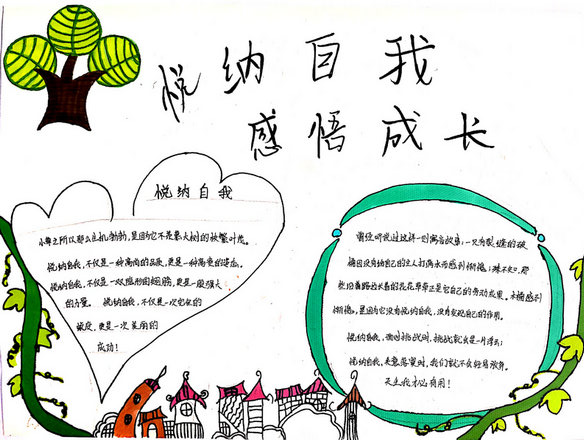 悦纳自我
感悟成长
悦纳自我
小草之所以那么生机勃勃,是因为它不羡慕大树的枝繁叶茂。
悦纳自我,不仅是一种高尚的品质,更是一种高贵的姿态。
悦纳自我,不仅是一双隐形的翅膀,更是一股强大
的力量。 悦纳自我,不仅是一次包容的
蜕皮,更是一次美丽的
成功!
曾经听说过这样一则寓言故事,一只有裂缝的破
桶因没有给自己的主人打满水而感到惭愧,殊不知,那
路边长着的花花草草正是它自己的劳动成果。木桶感到
惭愧,是因为它没有悦纳自我,没有发现自己的作用。
悦纳自我,面对挑战时,挑战就当是一片浮云;
悦纳自我,失意落寞时,我们就不会轻易放弃。
天生我材必有用!